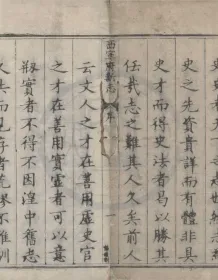 史之先資貴詳而有體非具
史才而得史法者曷以勝其
任哉志之難其人久矣前人
西寧府新志 序 一
云文人之才在善用虛史官
之才在善用實虛者可以意
實者不得不因湟中舊志
而存者荒不雅